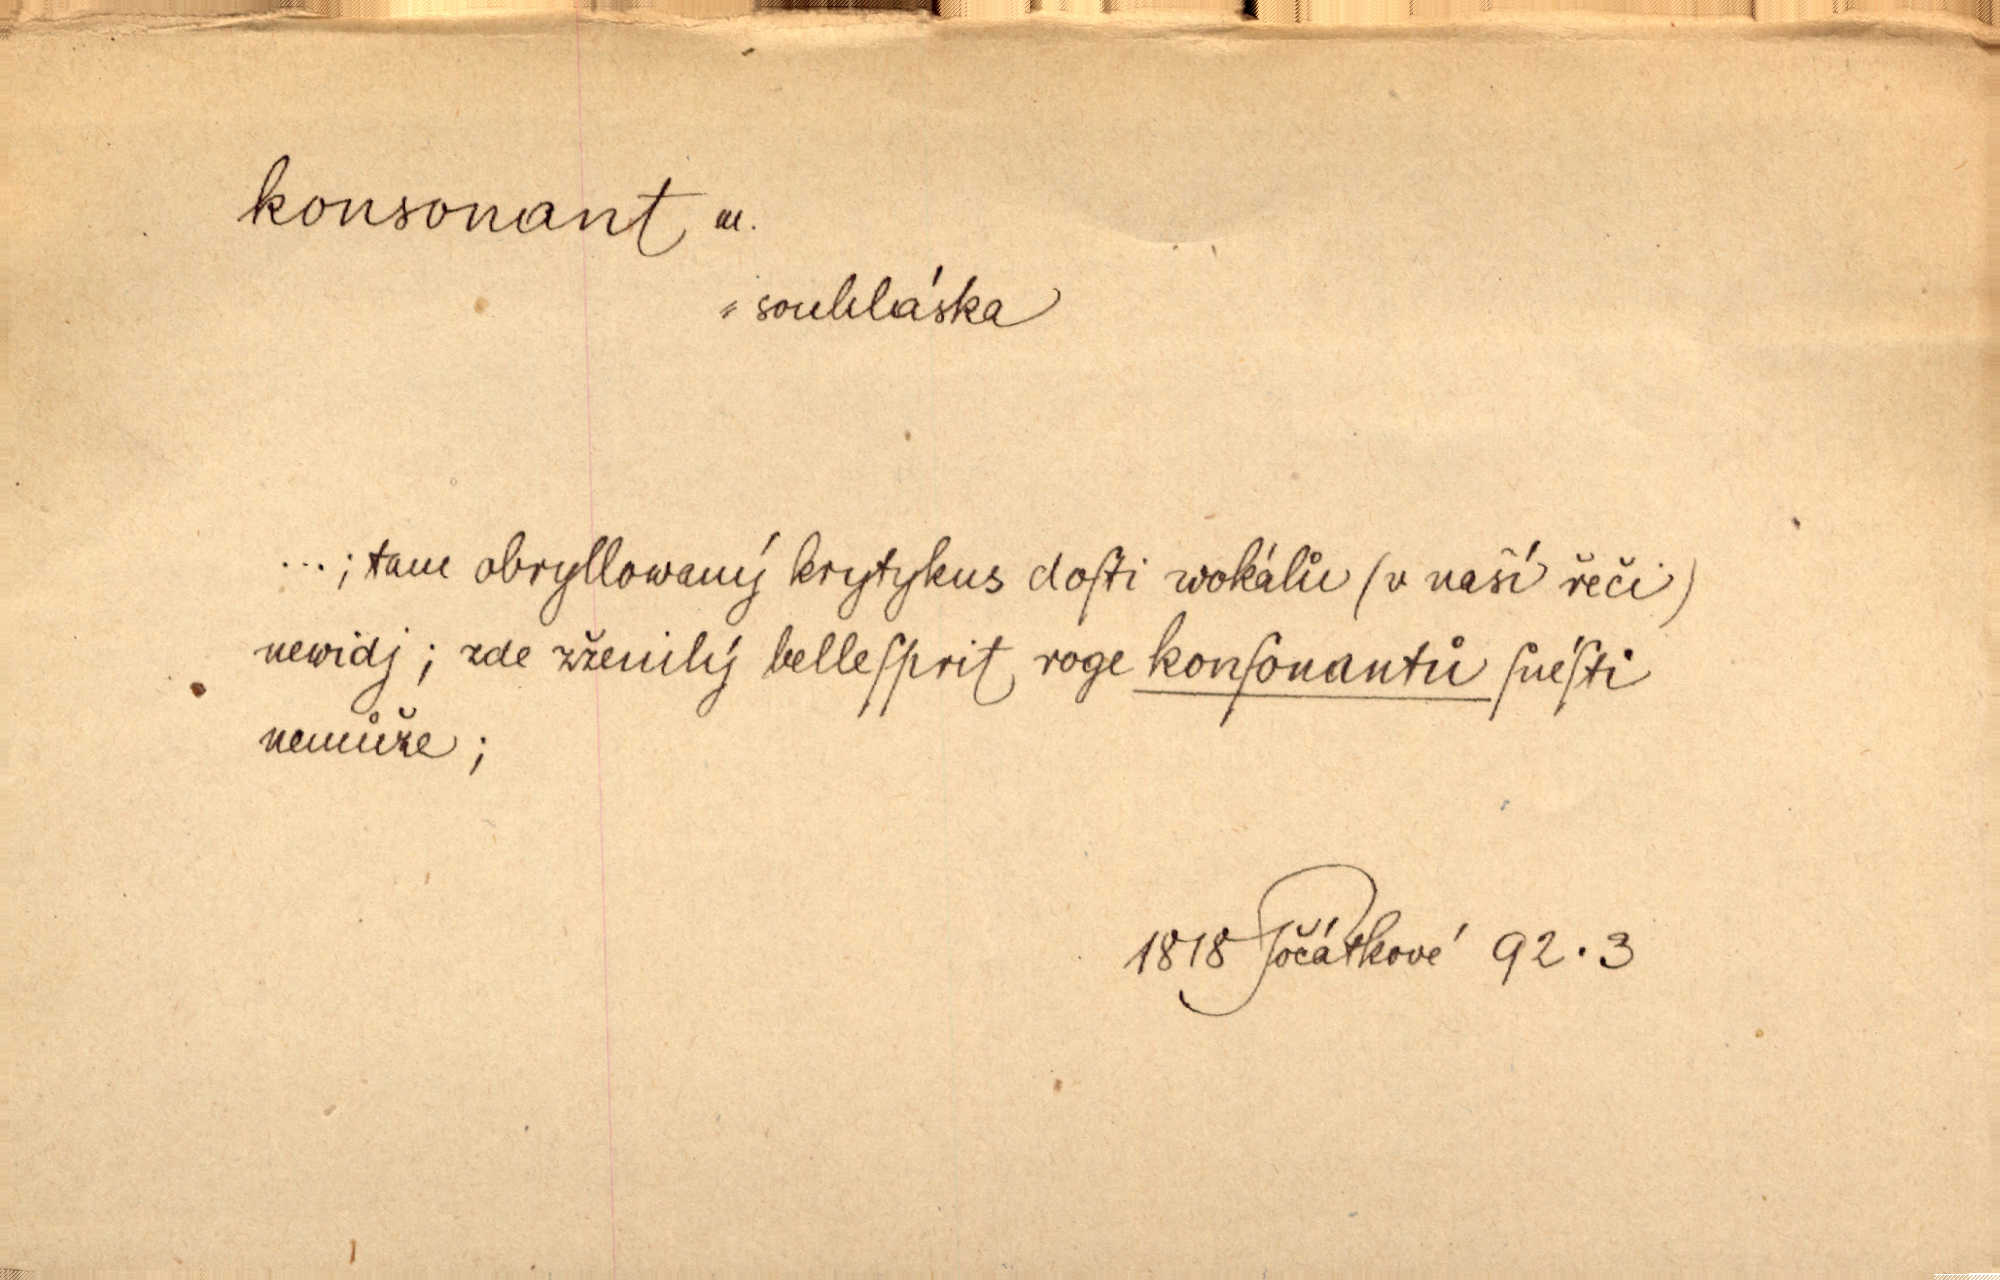 konsonant m.
= souhláska
...; tam obryllowaný krytykus doſti wokálů (v naší řeči)
newidj; zde zženilý belleſprit roge konſonantů ſnéſti
nemůže;
1818 Počátkové 92.3